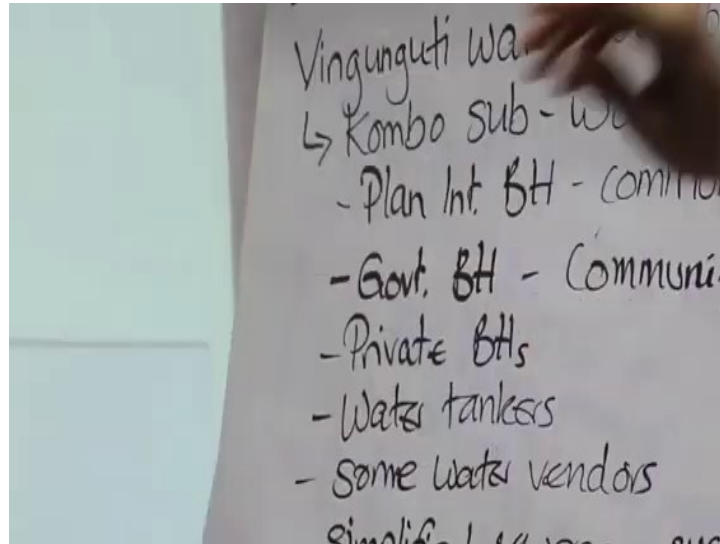 Vingunguti
↳ Kombo sub -
- Plan Int. BH -
- Govt. BH - Communi
- Private BHs
- Water tankers
- Some water vendors